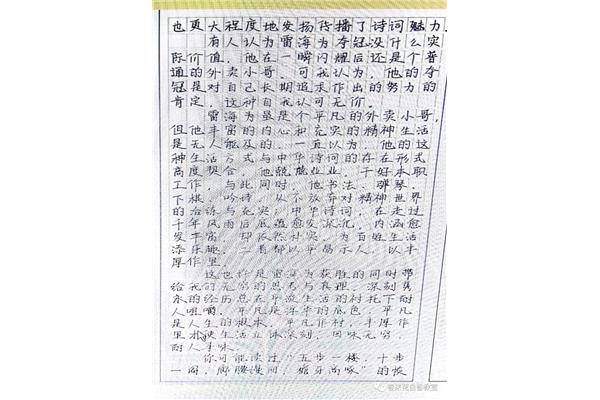 也更大程度地发扬海为传播了诗词魅力
有人认为在雷海为夺冠后没什么突
际值，他哥一瞬闪耀还是个普
通的外卖小哥，可我认为，他的夺
冠是对自己长期追求作出的努力的
肯定，这种自我认可无价。
雷海为虽是个平凡的外卖小哥，
但他丰富的内心和充实的精神生活
是无能及的。一直以为，他的这
种生活方式与中华诗词的存在形式
高度契合，他兢兢业业，干好本职
工作，与此同时，他书法、弹琴、
下棋、吟诗，从不放弃对精神世界
的冶练与充实；中华诗词，在走过
千年风雨后底蕴愈发深沉，内涵愈
发丰富，却依然朴实，为百姓生活
添乐趣。二者都以平易示人，以丰
厚作里。
这也许是雷海为获胜的同时带
给我们无穷的思考与真理，深刻隽
永的经历总在平淡生活的衬托下耐
人咀嚼，平凡是浮华的底色，平凡
是人生的根本，平凡作衬，丰厚作
里，使生活立体深刻，回味无穷，
耐人寻味。
你可能读过“五步一楼，十步
一阁，廊腰缦回，檐牙高啄”的恢